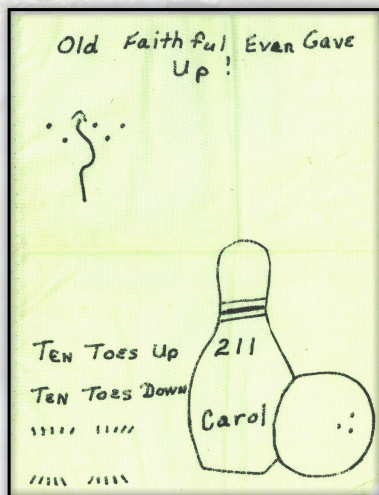 Old Faithful Even Gave
Up!
Ten Toes Up
Ten Toes Down
211
Carol